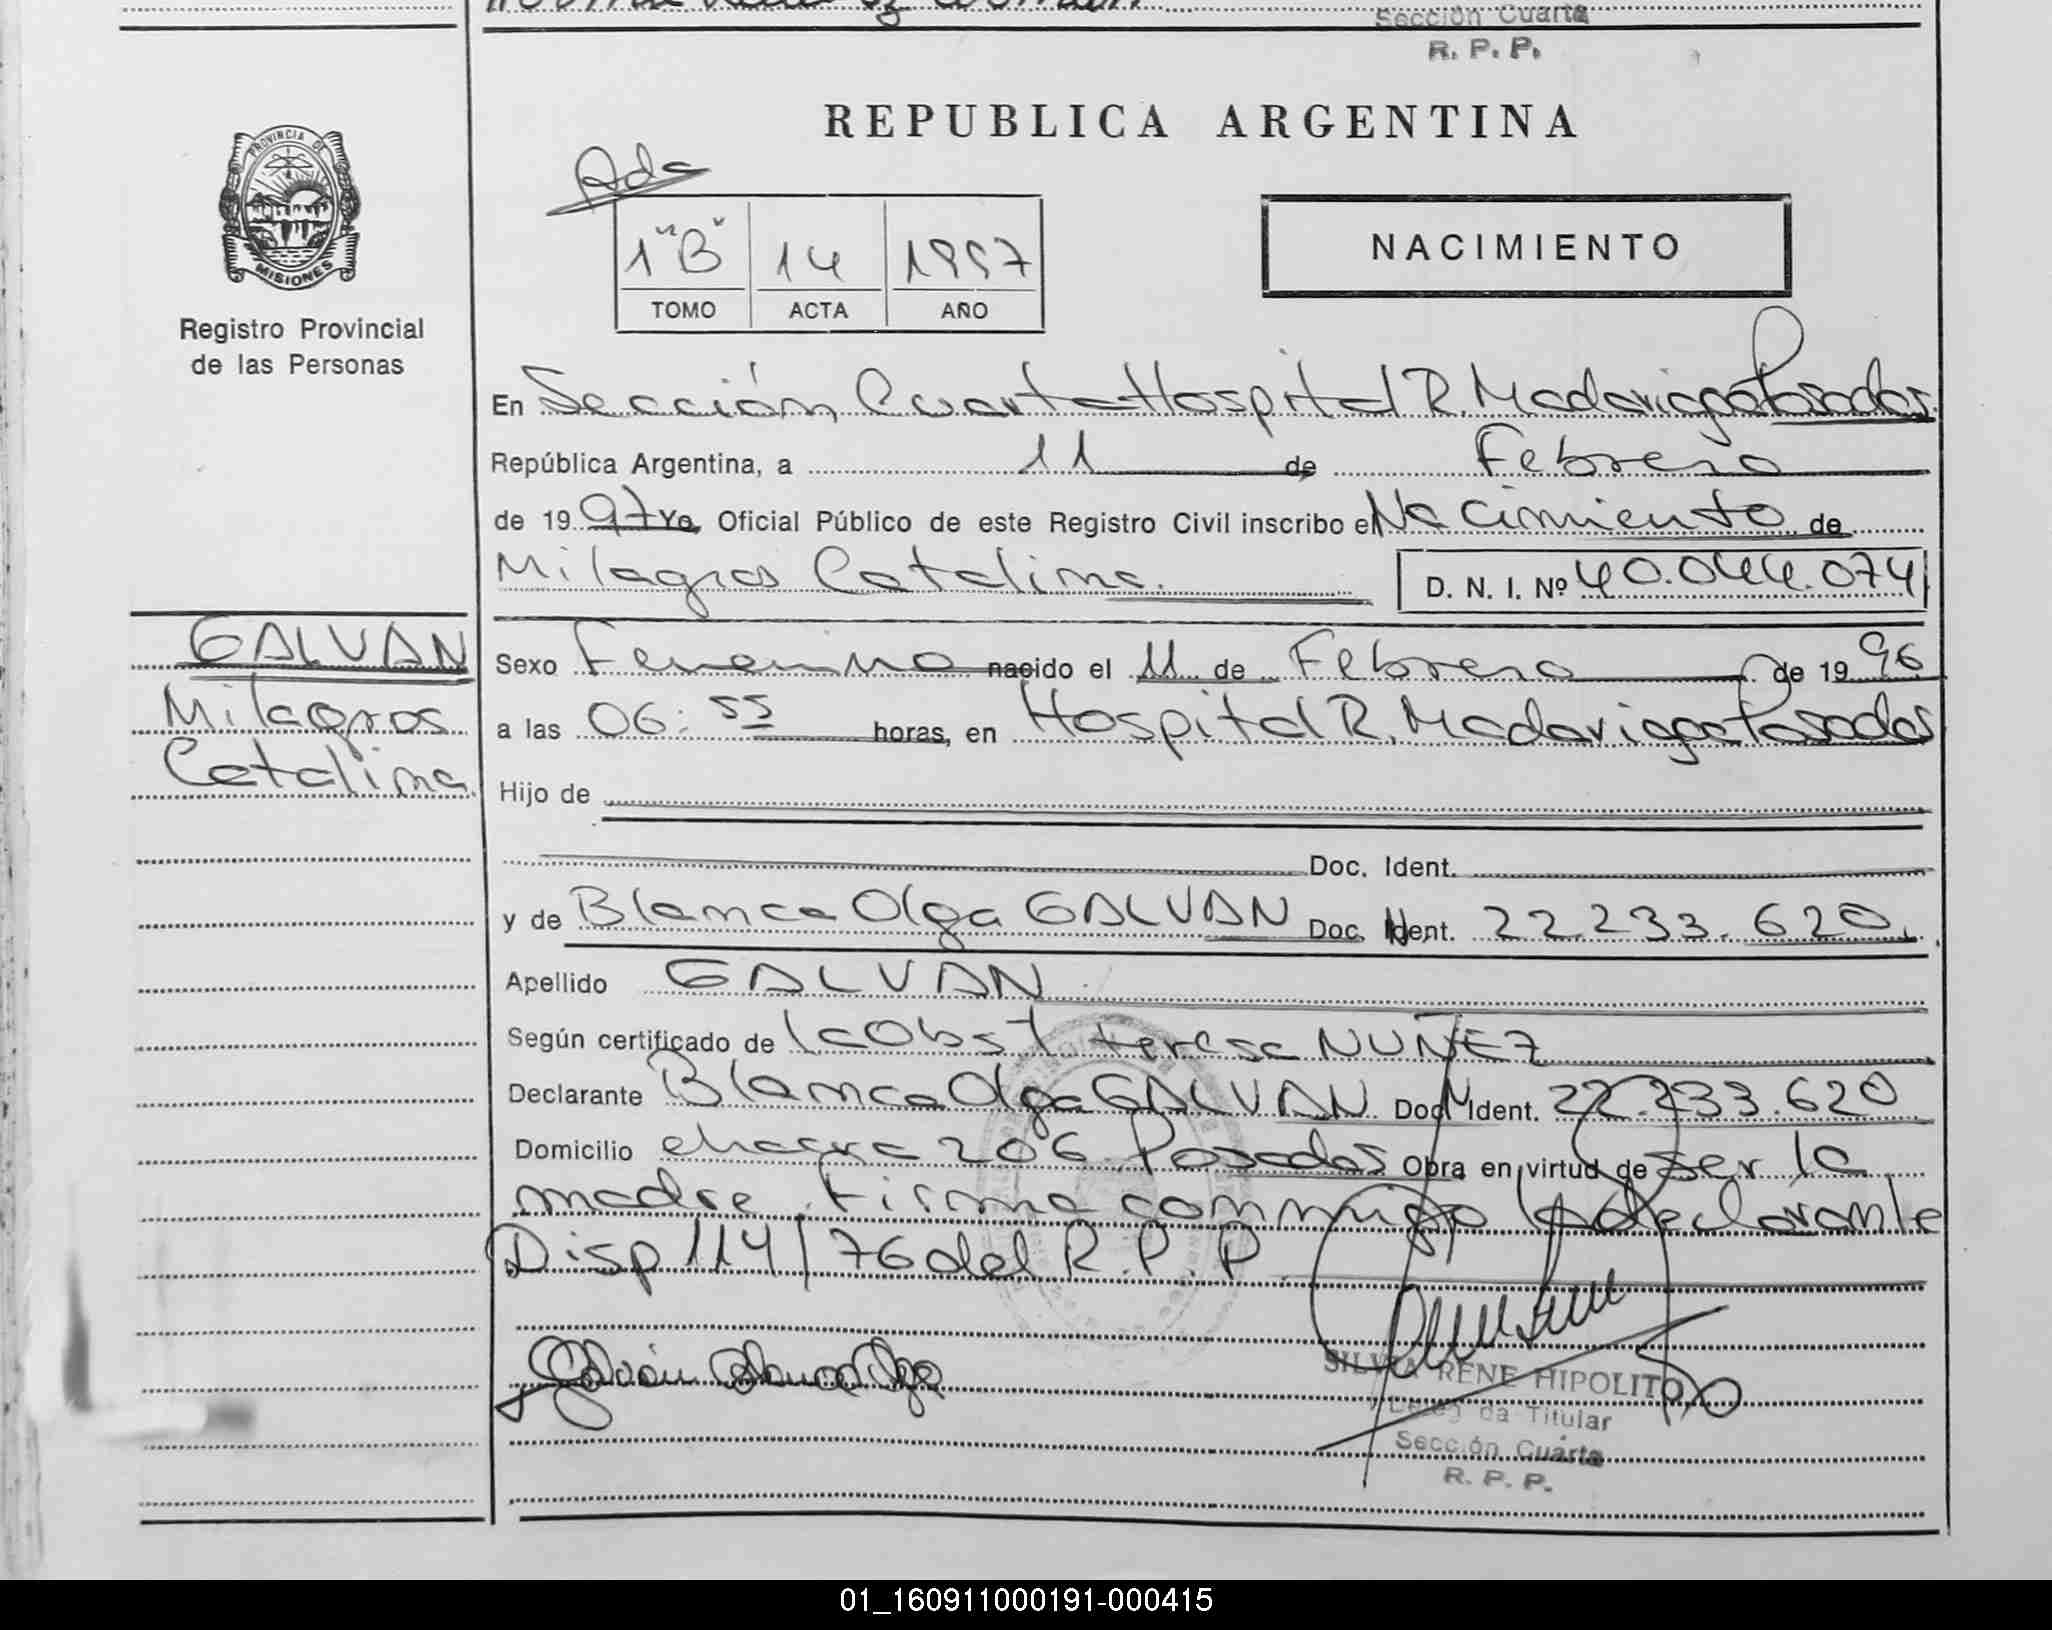 Sección Cuarta
R. P. P.
REPUBLICA ARGENTINA
PROVINCIA DE
MISIONES
Registro Provincial
de las Personas
1 "B" 14 1997
TOMO ACTA AÑO
NACIMIENTO
En Sección Cuarta Hospital R. Madariaga Posadas
República Argentina, a 11 de Febrero
de 1997 Yo, Oficial Público de este Registro Civil inscribo el Nacimiento de
Milagros Catalina. D. N. I. Nº 40.044.074
GALVAN
Milagros
Catalina
Sexo Femenino nacido el 11 de Febrero de 1996
a las 06:55 horas, en Hospital R. Madariaga Posadas
Hijo de
Doc. Ident.
y de Blanca Olga GALVAN Doc. Ident. 22.233.620.
Apellido GALVAN
Según certificado de la Obst teresa NUÑEZ
Declarante Blanca Olga GALVAN Doc. Ident. 22.233.620
Domicilio chacra 206 Posadas Obra en virtud de ser la
madre. Firma conmigo la declarante
Disp 114/76 del R.P.P.
Galván Blanca Olga
SILVIA RENE HIPOLITO
Titular
Sección Cuarta
R. P. P.
01_160911000191-000415